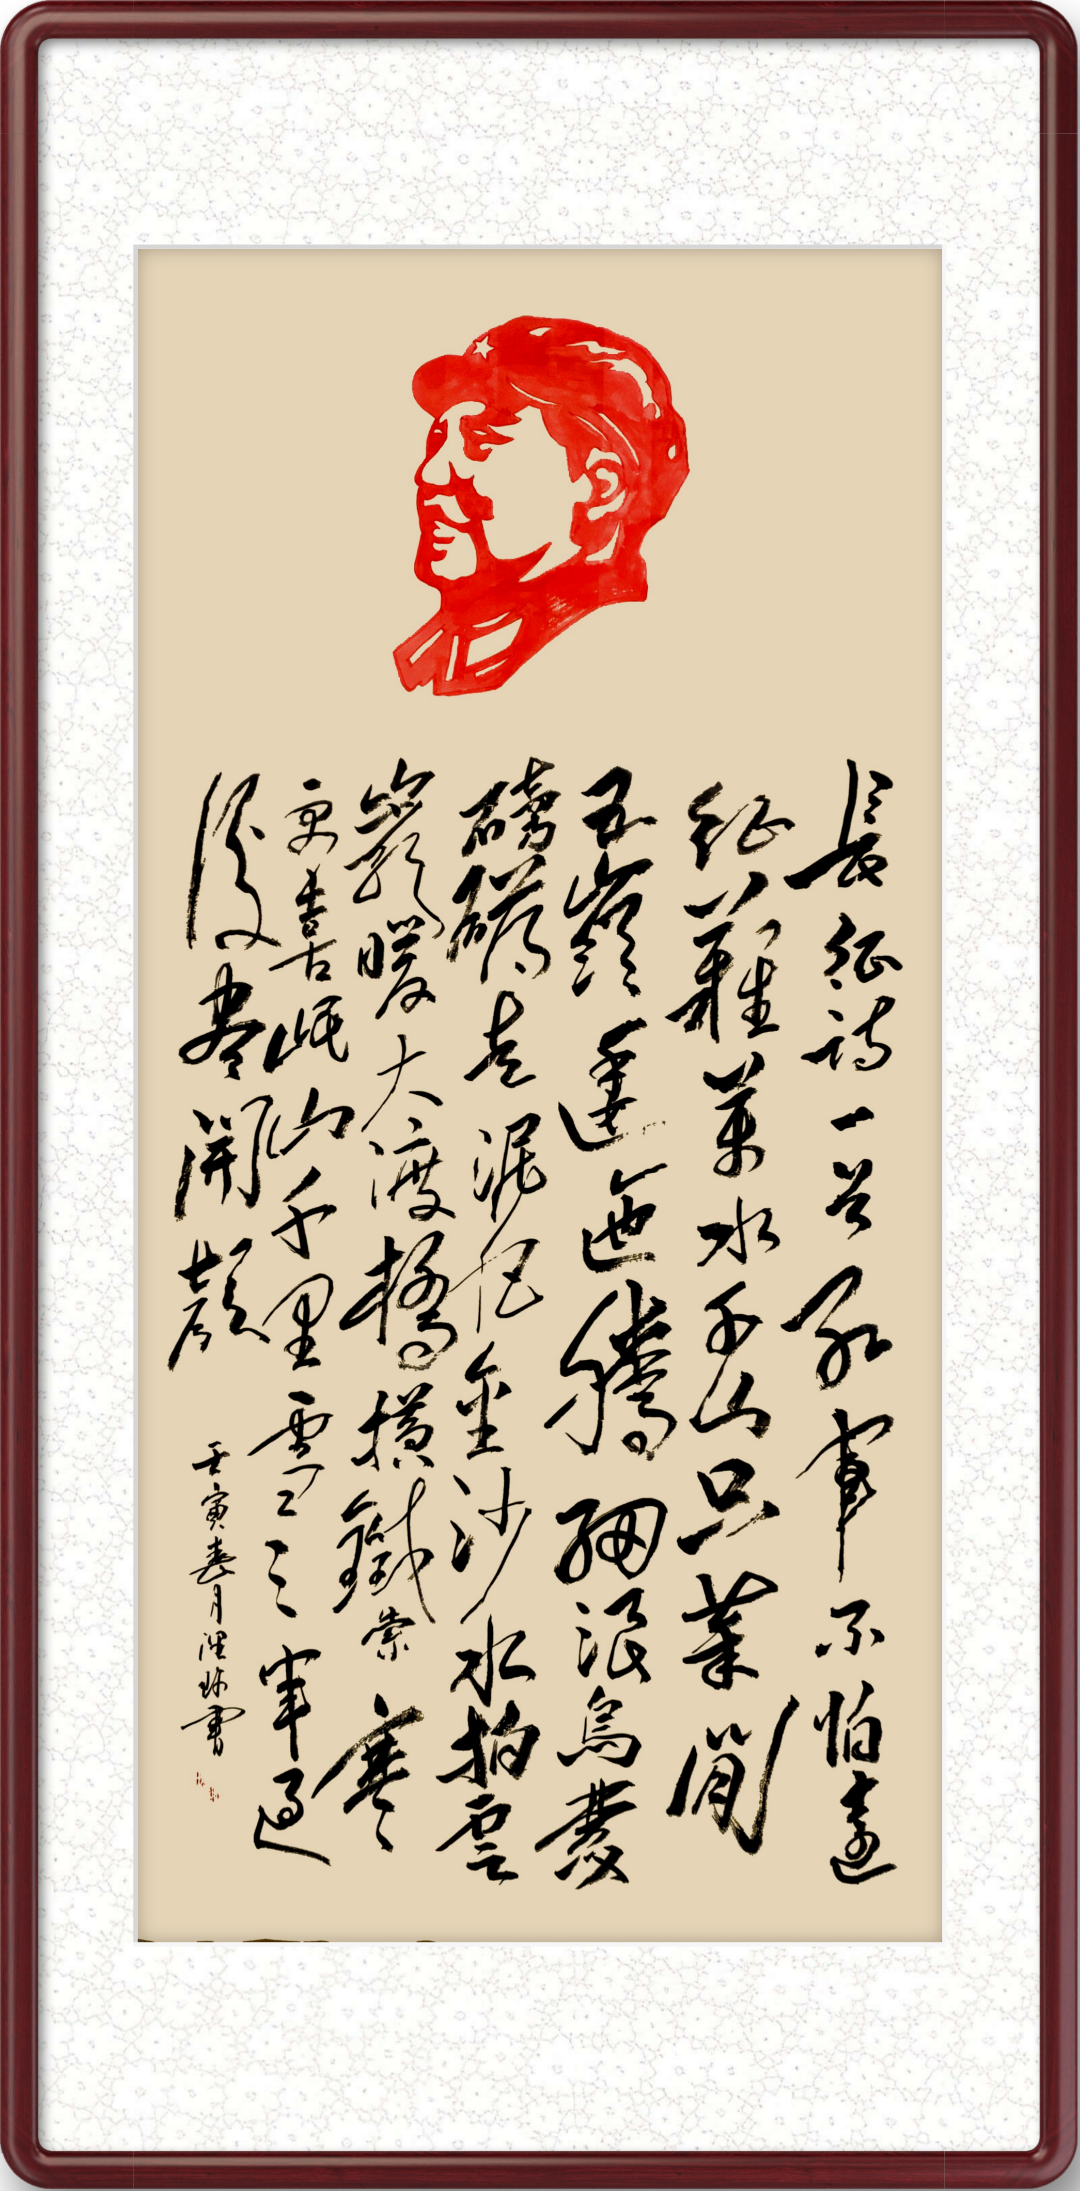 長征詩一首紅軍不怕遠
征難萬水千山只等閒
五嶺逶迤騰細浪烏蒙
磅礴走泥丸金沙水拍雲
巖暖大渡橋橫鐵索寒
更喜岷山千里雪三軍過
後盡開顏
壬寅春月書